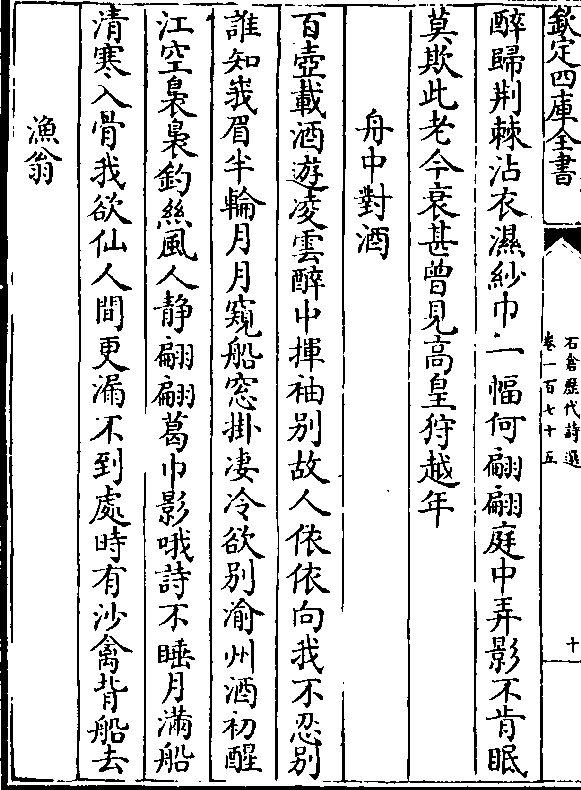 欽定四庫全書
石倉歷代詩選
卷一百七十五
十
醉歸荆棘沾衣濕紗巾一幅何翩翩庭中弄影不肯眠
莫欺此老今衰甚曾見高皇狩越年
舟中對酒
百壺載酒遊凌雲醉中揮袖别故人依依向我不忍别
誰知峩眉半輪月月窺船窓掛凄冷欲别渝州酒初醒
江空裊裊釣絲風人静翩翩葛巾影哦詩不睡月滿船
清寒入骨我欲仙人間更漏不到處時有沙禽背船去
漁翁